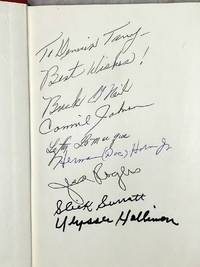 To Dennis Tany -
Best Wishes!
Buck O'Neil
Connie Johnson
Lefty
Herman "Doc" Horn Jr
Joe Rogers
Slick Surratt
Ulysses Hollimon